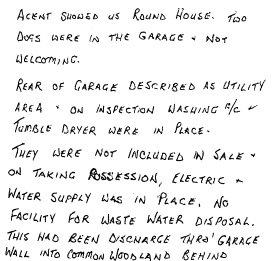 AGENT SHOWED US ROUND HOUSE. TWO
DOGS WERE IN THE GARAGE + NOT
WELCOMING.
REAR OF GARAGE DESCRIBED AS UTILITY
AREA + ON INSPECTION WASHING M/C +
TUMBLE DRYER WERE IN PLACE.
THEY WERE NOT INCLUDED IN SALE +
ON TAKING POSSESSION, ELECTRIC +
WATER SUPPLY WAS IN PLACE. NO
FACILITY FOR WASTE WATER DISPOSAL.
THIS HAD BEEN DISCHARGE THRO' GARAGE
WALL INTO COMMON WOODLAND BEHIND